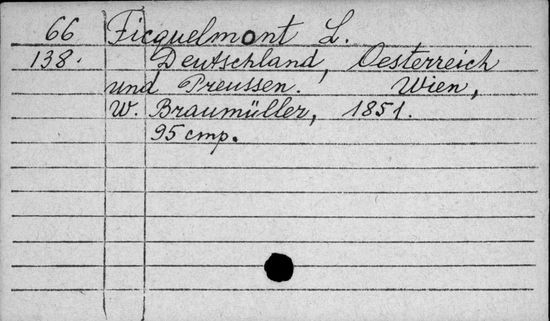 66 Ficquelmont L.
138. Deutschland, Oesterreich
und Preussen. Wien,
W. Braumüller, 1851.
95 cmp.